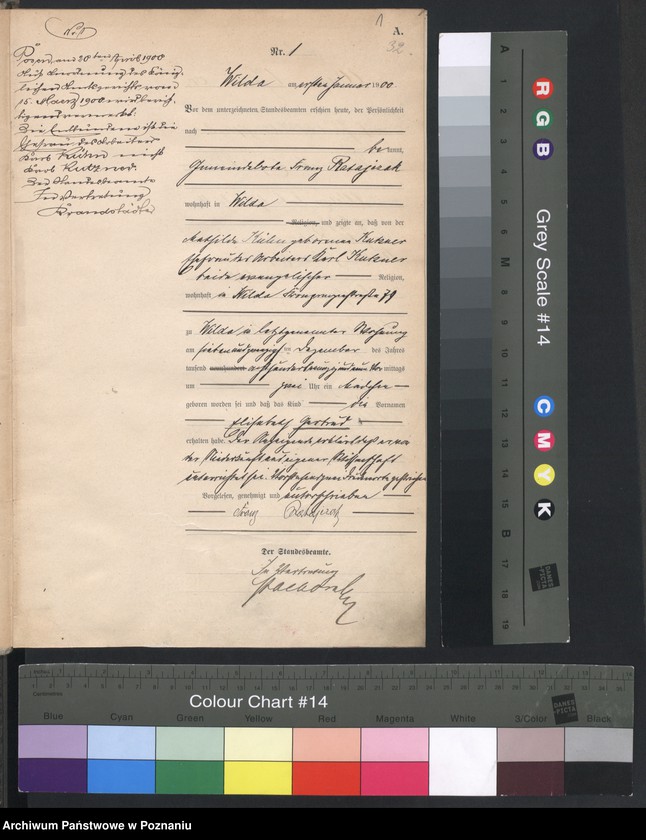 1
A.
32.
Nr. 1
Wilda am ersten Januar 1900
Vor dem unterzeichneten Standesbeamten erschien heute, der Persönlichkeit
nach
bekannt,
Gemeindebote Franz Ratajczak
wohnhaft in Wilda
Religion, und zeigte an, daß von der
Mathilde Kühn geborenen Kutzner
Ehefrau des Arbeiters Karl Kutzner
beide evangelischer Religion,
wohnhaft in Wilda Kronprinzenstraße 79
zu Wilda in letztgenannter Wohnung
am siebenundzwanzigsten Dezember des Jahres
tausend neunhundert achthundertneunundneunzig Vormittags
um zwei Uhr ein Mädchen
geboren worden sei und daß das Kind die Vornamen
Elisabeth Gertrud
erhalten habe. Der Anzeigende erklärte, daß er von
der Niederkunft aus eigener Wissenschaft
unterrichtet sei. Vorstehend Druckworte gestrichen
Vorgelesen, genehmigt und unterschrieben
Franz Ratajczak
Der Standesbeamte.
In Vertretung
Posen, am 20ten April 1900
Auf Anordnung des König-
lichen Amtsgerichts vom
15. März 1900 wird berich-
tigend vermerkt:
Die Entbundene ist die
Ehefrau des Arbeiters
Karl Kühn nicht
Karl Kutzner.
Der Standesbeamte
In Vertretung
Brandstäter
A
1
2
3
4
5
6
M
8
9
10
11
12
13
14
15
B
17
18
19
R
G
B
Grey Scale #14
C
M
Y
K
DANES
PICTA
Colour Chart #14
DANES
PICTA
Blue Cyan Green Yellow Red Magenta White 3/Color Black
Archiwum Państwowe w Poznaniu